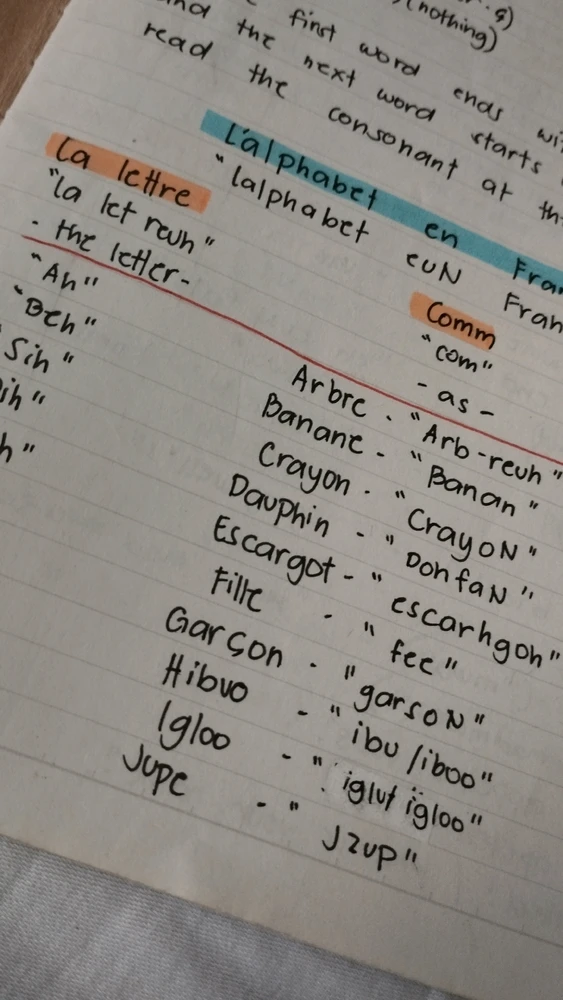 (nothing)
first word ends
and the next word starts
read the consonant at
L'alphabet en
"lalphabet euN
La lettre
"la let reuh"
- the letter-
Comm
"com"
- as -
"Ah"
"Beh"
Sih"
Arbre - "Arb-reuh"
Banane - "Banan"
Crayon - "CrayoN"
Dauphin - "DonfaN"
Escargot - "escarhgoh"
Fille - "fee"
Garçon - "garsoN"
Hibuo - "ibu/iboo"
Igloo - "iglut igloo"
Jupe - "Jzup"